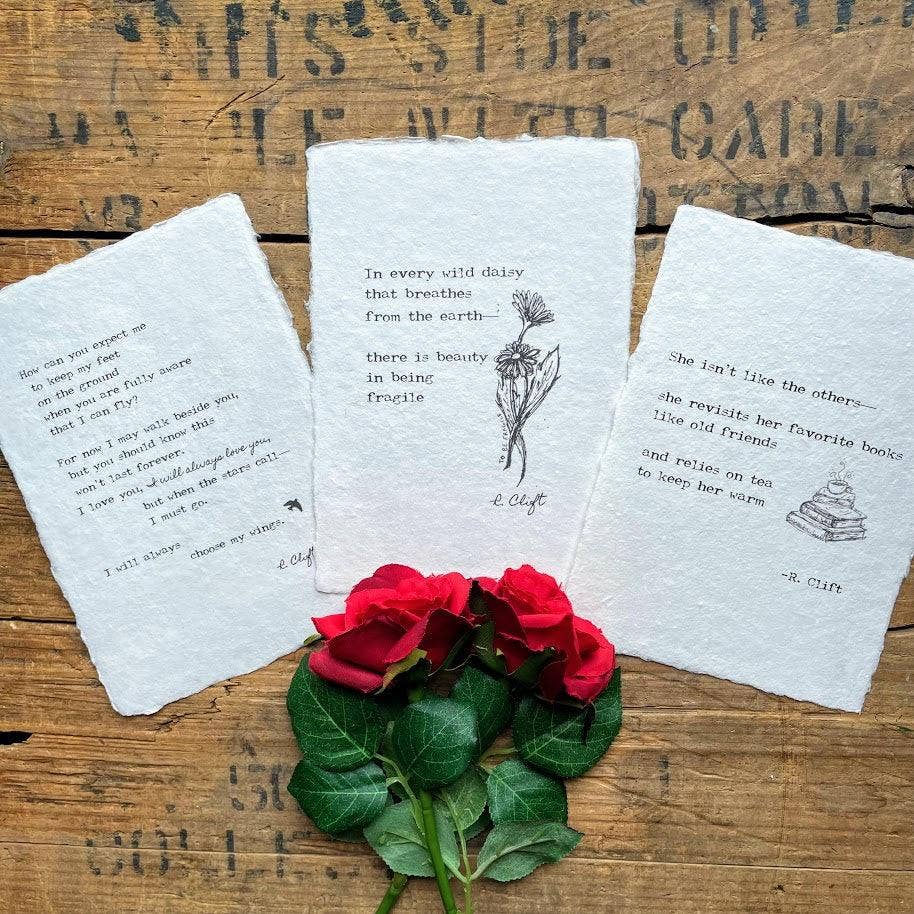 THIS SIDE
WITH CARE
How can you expect me
to keep my feet
on the ground
when you are fully aware
that I can fly?
For now I may walk beside you,
but you should know this
won't last forever.
I love you, I will always love you,
but when the stars call—
I must go.
I will always choose my wings.
R. Clift
In every wild daisy
that breathes
from the earth—
there is beauty
in being
fragile
R. Clift
She isn't like the others—
she revisits her favorite books
like old friends
and relies on tea
to keep her warm
-R. Clift